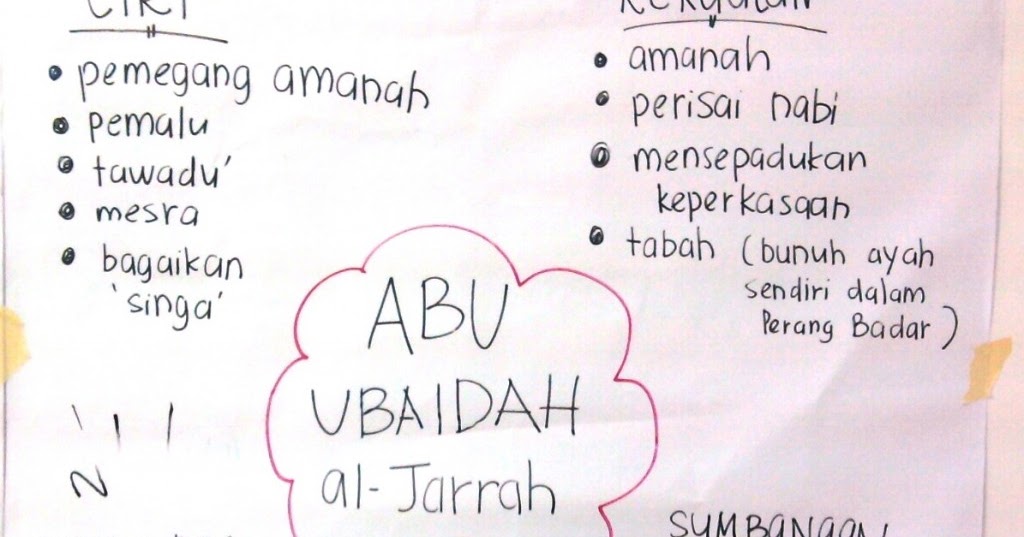 CIRI
• pemegang amanah
• pemalu
• tawadu'
• mesra
• bagaikan
'singa'
KEKUATAN
• amanah
• perisai nabi
• mensepadukan
keperkasaan
• tabah (bunuh ayah
sendiri dalam
Perang Badar)
ABU
UBAIDAH
al-Jarrah
SUMBANGAN